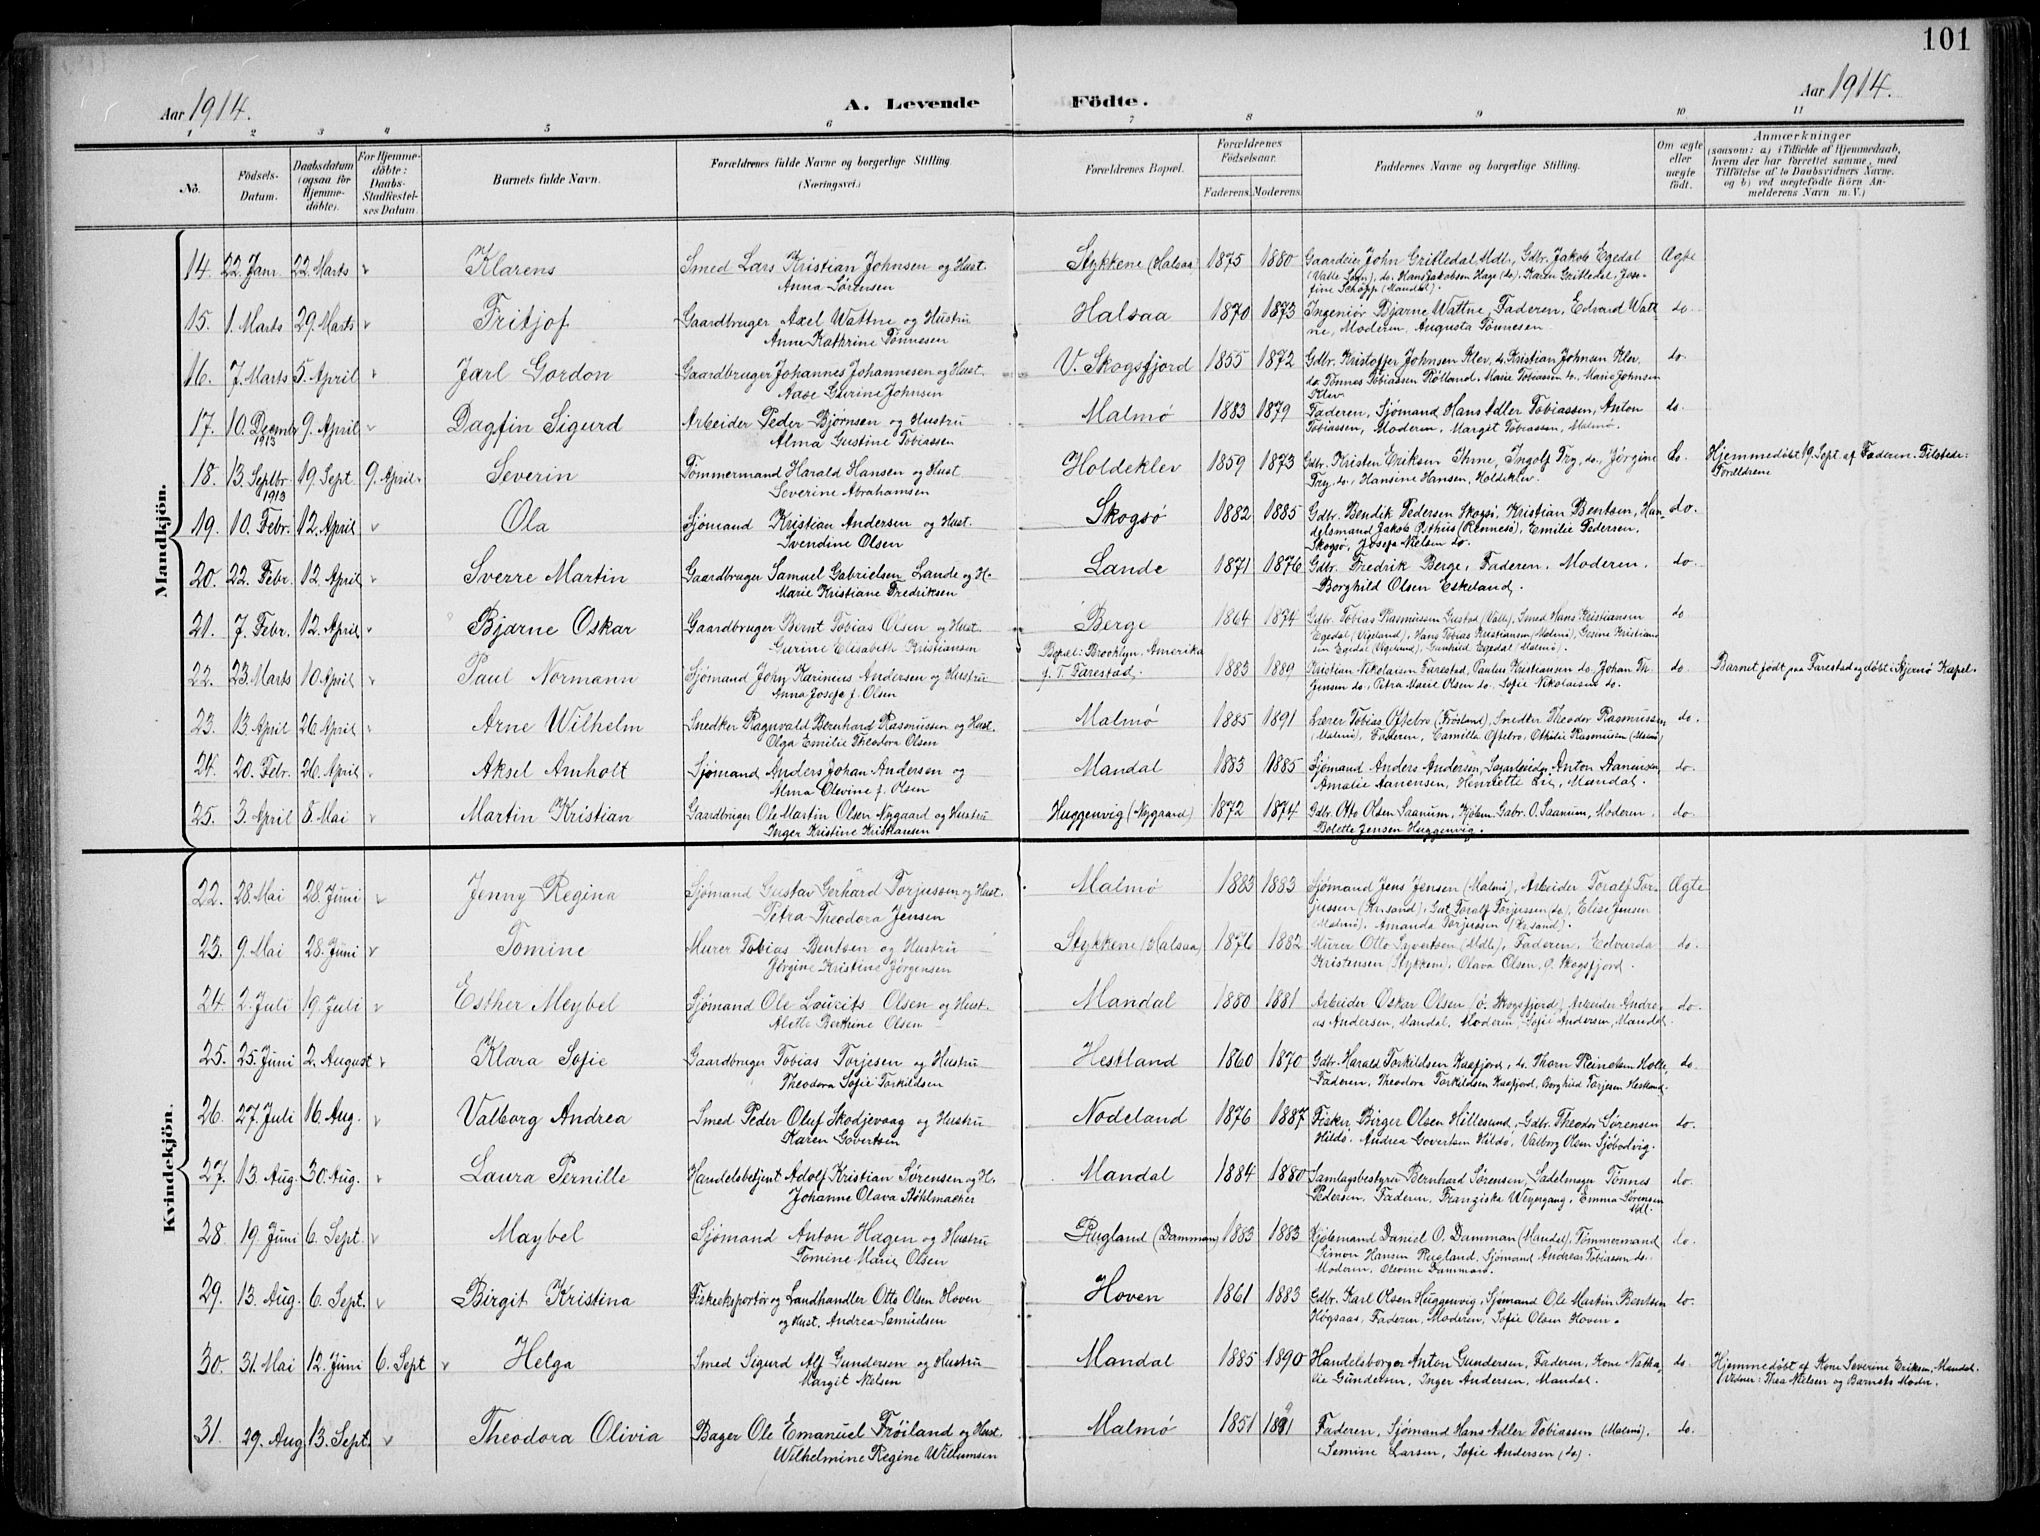 101
Aar 1914.
A. Levende Födte.
Aar 1914.
1 2 3 4 5 6 7 8 9 10 11
No.
Födsels-Datum.
Daabsdatum (ogsaa for Hjemme-döbte).
For Hjemme-döbte: Daabs-Stadfæstel-ses Datum.
Barnets fulde Navn.
Forældrenes fulde Navne og borgerlige Stilling (Næringsvei.)
Forældrenes Bopæl.
Forældrenes Födselsaar.
Faderens. Moderens.
Faddernes Navne og borgerlige Stilling.
Om ægte eller uægte födt.
Anmærkninger (saasom: a) i Tilfælde af Hjemmedaab, hvem der har forrettet samme, med Tilföielse af to Daabsvidners Navne. og b) ved uægtefödte Börn An-melderens Navn m. V.)
Mandkjön.
14. 22. Janr. 22. Marts Klarens Smed Lars Kristian Johnsen og Hust. Stykkene (Halsaa) 1875 1880 Gaardeier John Grilledal Mdl., Gdbr. Jakob Egedal Ægte
Anna Sørensen (Valle Sogn), do. Hans Jakobsen Hage (do). Karen Grilledal, Jose-
fine Schöpp (Mandal).
15. 1. Marts 29. Marts Fritjof Gaardbruger Axel Wattne og Hustru Halsaa 1870 1873 Ingeniør Bjarne Wattne, Faderen, Edvard Watt- do.
Anne Kathrine Tønnesen ne, Moderen, Augusta Tønnesen
16. 7. Marts 5. April Jarl Gordon Gaardbruger Johannes Johannesen og Hust. V. Skogsfjord 1855 1872 Gdbr. Kristoffer Johnsen Klev, do. Kristian Johnsen Klev do.
Aase Gurine Johnsen do. Tønnes Tobiassen Røiland, Marie Tobiassen do., Marie Johnsen
Klev.
17. 10. Decmbr 9. April Dagfin Sigurd Arbeider Peder Bjørnsen og Hustru Malmø 1883 1879 Faderen, Sjømand Hans Adler Tobiassen, Anton do.
1913 Alma Gustine Tobiassen Tobiassen, Moderen, Margit Tobiassen, Malmø.
18. 13. Septbr 19. Sept. 9. April Severin Tømmermand Harald Hansen og Hust. Holdeklev 1859 1873 Gdbr. Kristen Eriksen Ihme, Ingolf Try, do., Jørgine do. Hjemmedøbt 19. Sept. af Faderen. Tilstede:
1913 Severine Abrahamsen Try, do., Hansine Hansen, Holdeklev. Forældrene
19. 10. Febr. 12. April Ola Sjømand Kristian Andersen og Hust. Skogsø 1882 1885 Gdbr. Bendik Pedersen Skogsø, Kristian Bentsen, Han- do.
Svendine Olsen delsmand Jakob Osthus (Rennesø), Emilie Pedersen
Skogsø, Josefa Nielsen do.
20. 22. Febr. 12. April Sverre Martin Gaardbruger Samuel Gabrielsen Lande og H. Lande 1871 1876 Gdbr. Fredrik Berge, Faderen, Moderen, do.
Marie Kristiane Fredriksen Borghild Olsen Eskeland.
21. 7. Febr. 12. April Bjarne Oskar Gaardbruger Bernt Tobias Olsen og Hust. Berge 1864 1874 Gdbr. Tobias Rasmussen Gustad (Valle), Smed Hans Kristiansen do
Gurine Elisabeth Kristiansen Egedal (Vigeland), Hans Tobias Kristiansen (Malmø), Gesine Kristian
sen Egedal (Vigeland), Gunhild Egedal (Malmø).
Bopæl: Brooklyn, Amerika
22. 23. Marts 10. April Paul Normann Sjømand John Karinius Andersen og Hustru f. T. Farestad. 1883 1889 Kristian Nikolaisen Farestad, Paulus Kristiansen do. Johan Th. do. Barnet født paa Farestad og døbt i Hjernø Kapel.
Anna Josefa f. Olsen Jensen do., Petra Marie Olsen do. Sofie Nikolaisen do.
23. 13. April 26. April Arne Wilhelm Snedker Ragnvald Bernhard Rasmussen og Hust. Malmø 1885 1891 Lærer Tobias Oftebro (Frøsland), Snedker Theodor Rasmussen do.
Olga Emilie Theodora Olsen (Malmø), Faderen, Camilla Oftebro, Othilie Rasmussen (Malmø)
24. 20. Febr. 26. April Aksel Arnholt Sjømand Anders Johan Andersen og Mandal 1883 1885 Sjømand Anders Andersen, Anton Aanensen, do.
Alma Olevine f. Olsen Amalie Aanensen, Henriette Lie, Mandal.
25. 3. April 8. Mai Martin Kristian Gaardbruger Ole Martin Olsen Nygaard og Hustru Huggenvig (Nygaard) 1872 1874 Gdbr. Otto Olsen Saanum, Kjøbm. Gabr. O. Saanum, Moderen, do.
Inger Kristine Kristiansen Bolette Jensen Huggenvig.
Kvindekjön.
22. 28. Mai 28. Juni Jenny Regina Sjømand Gustav Gerhard Torjussen og Hust. Malmø 1883 1883 Sjømand Jens Jensen (Malmø), Arbeider Toralf Tor- Ægte
Petra Theodora Jensen jussen (Kr.sand), Gut Toralf Torjussen (do), Elise Jensen
(Malmø), Amanda Torjussen (Kr.sand).
23. 9. Mai 28. Juni Tomine Murer Tobias Bentsen og Hustru Stykkene (Halsaa) 1876 1882 Murer Otto Syvertsen (Mdl), Faderen, Edvarda do.
Jørgine Kristine Jørgensen Kristensen (Stykkene), Olava Olsen, Ø. Skogsfjord.
24. 2. Juli 19. Juli Esther Meybel Sjømand Ole Laurits Olsen og Hust. Mandal 1880 1881 Arbeider Oskar Olsen (Ø. Skogsfjord), Arbeider Andre- do.
Alette Berthine Olsen as Andersen, Mandal, Moderen, Sofie Andersen, Mandal.
25. 25. Juni 2. August Klara Sofie Gaardbruger Tobias Torjesen og Hustru Hestland 1860 1870 Gdbr. Harald Torkildsen Kaafjord, do. Thorn Reinertsen Holte, do.
Theodora Sofie Torkildsen Faderen, Theodora Torkildsen Kaafjord, Borghild Torjesen Hestland.
26. 27. Juli 16. Aug. Valborg Andrea Smed Peder Oluf Skodjevaag og Hustru Nodeland 1876 1887 Fisker Birger Olsen Hillesund, Gdbr. Theodor Sørensen do.
Karen Govertsen Hildø. Andrea Govertsen Hildø, Valborg Olsen Sjøbodvig.
27. 13. Aug. 30. Aug. Laura Pernille Handelsbetjent Adolf Kristian Sørensen og H. Mandal 1884 1880 Samlagsbestyrer Bernhard Sørensen, Sadelmager Tønnes do.
Johanne Olava Støhlmacher Pedersen, Faderen, Franziska Weyergang, Emma Sørensen
Mdl.
28. 19. Juni 6. Sept. Maybel Sjømand Anton Hagen og Hustru Rugland (Damman) 1883 1883 Kjølemand Daniel O. Damman (Mandal), Tømmermand do.
Tomine Marie Olsen Simon Hansen Rugland, Sjømand Andreas Tobiassen do.
Moderen, Olevine Damman.
29. 13. Aug. 6. Sept. Birgit Kristina Fiskeeksportør og Landhandler Otto Olsen Hoven Hoven 1861 1883 Gdbr. Karl Olsen Huggenvig, Sjømand Ole Martin Bentsen do.
og Hust. Andrea Samuelsen Høgsaas, Faderen, Moderen, Sofie Olsen Hoven.
30. 31. Mai 12. Juni 6. Sept Helga Smed Sigurd Alf Gundersen og Hustru Mandal 1885 1890 Handelsborger Anton Gundersen, Faderen, Kone Natha- do. Hjemmedøbt af Kone Severine Eriksen, Mandal.
Margit Nielsen lie Gundersen, Inger Andersen, Mandal. Vidner: Thea Nielsen og Barnets Moder.
31. 29. Aug. 13. Sept. Theodora Olivia Bager Ole Emanuel Frøiland og Hust. Malmø 1851 Faderen, Sjømand Hans Adler Tobiassen (Malmø), do.
Wilhelmine Regine Willumsen Semine Larsen, Sofie Andersen (do).